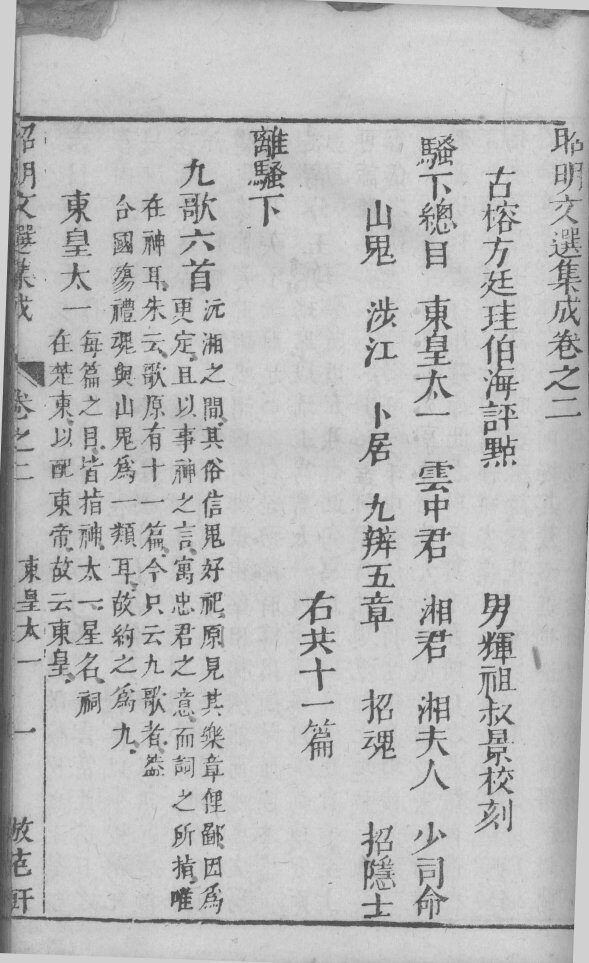 昭明文選集成卷之二
古榕方廷珪伯海評點 男輝祖叔景校刻
騷下總目 東皇太一 雲中君 湘君 湘夫人 少司命
山鬼 涉江 卜居 九辨五章 招魂 招隱士
右共十一篇
離騷下
九歌六首
沅湘之間其俗信鬼好祀原見其樂章俚鄙因爲
更定且以事神之言寓忠君之意而詞之所指唯
在神耳朱云歌原有十一篇今只云九歌者蓋
合國殤禮魂與山鬼爲一類耳故約之爲九
東皇太一
每篇之目皆指神太一星名祠
在楚東以配東帝故云東皇
昭明文選集成 卷之二 東皇太一 一 倣范軒